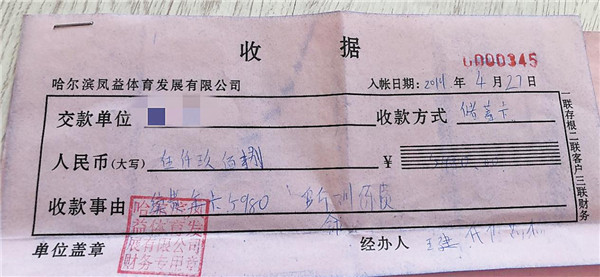 收 据
0000345
哈尔滨凤益体育发展有限公司 入帐日期: 2019 年 4 月 27 日
交款单位 收款方式 储蓄卡
人民币(大写) 伍仟玖佰捌 ¥
收款事由 年卡 5980
哈尔滨凤益体育发展有限公司财务专用章
单位盖章 经办人
一联存根二联客户三联财务